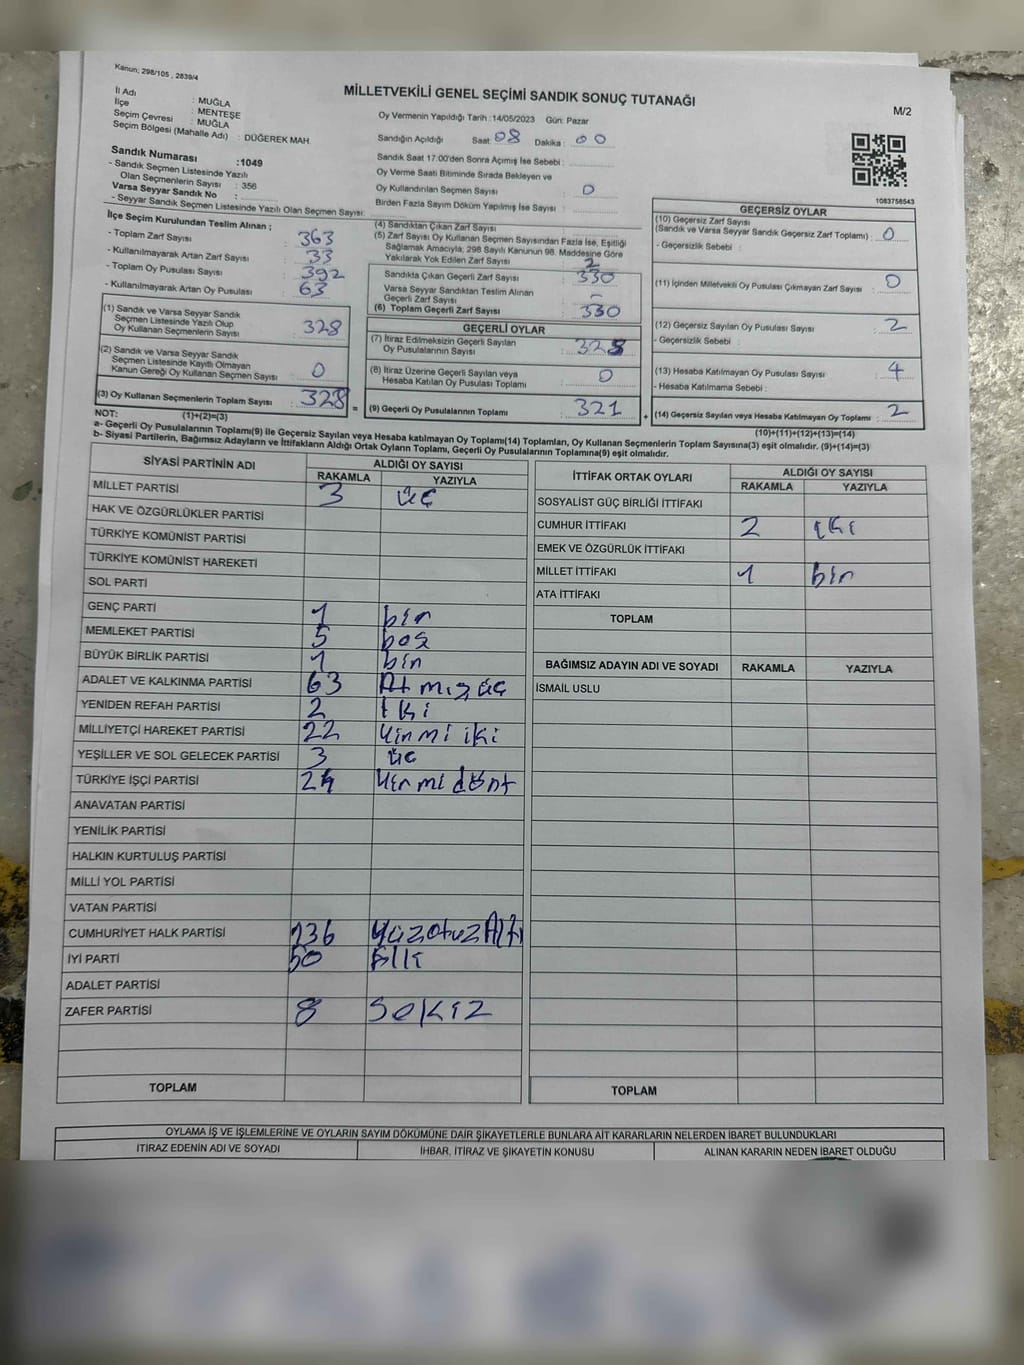 Kanun; 298/105 , 2839/4
MİLLETVEKİLİ GENEL SEÇİMİ SANDIK SONUÇ TUTANAĞI
M/2
İl Adı : MUĞLA
İlçe : MENTEŞE
Seçim Çevresi : MUĞLA
Seçim Bölgesi (Mahalle Adı) : DÜĞEREK MAH.
Sandık Numarası :1049
- Sandık Seçmen Listesinde Yazılı
Olan Seçmenlerin Sayısı : 356
Varsa Seyyar Sandık No :
- Seyyar Sandık Seçmen Listesinde Yazılı Olan Seçmen Sayısı:
Oy Vermenin Yapıldığı Tarih :14/05/2023 Gün: Pazar
Sandığın Açıldığı Saat: 08 Dakika : 00
Sandık Saat 17:00'den Sonra Açımış İse Sebebi :
Oy Verme Saati Bitiminde Sırada Bekleyen ve
Oy Kullandırılan Seçmen Sayısı : 0
Birden Fazla Sayım Döküm Yapılmış İse Sayısı :
1083758543
İlçe Seçim Kurulundan Teslim Alınan ;
- Toplam Zarf Sayısı : 363
- Kullanılmayarak Artan Zarf Sayısı : 33
- Toplam Oy Pusulası Sayısı : 392
- Kullanılmayarak Artan Oy Pusulası : 63
(1) Sandık ve Varsa Seyyar Sandık
Seçmen Listesinde Yazılı Olup
Oy Kullanan Seçmenlerin Sayısı : 328
(2) Sandık ve Varsa Seyyar Sandık
Seçmen Listesinde Kayıtlı Olmayan
Kanun Gereği Oy Kullanan Seçmen Sayısı : 0
(3) Oy Kullanan Seçmenlerin Toplam Sayısı : 328
(1)+(2)=(3)
(4) Sandıktan Çıkan Zarf Sayısı :
(5) Zarf Sayısı Oy Kullanan Seçmen Sayısından Fazla İse, Eşitliği
Sağlamak Amacıyla, 298 Sayılı Kanunun 98. Maddesine Göre
Yakılarak Yok Edilen Zarf Sayısı : 2
Sandıkta Çıkan Geçerli Zarf Sayısı : 330
Varsa Seyyar Sandıktan Teslim Alınan
Geçerli Zarf Sayısı : -
(6) Toplam Geçerli Zarf Sayısı : 330
GEÇERLİ OYLAR
(7) İtiraz Edilmeksizin Geçerli Sayılan
Oy Pusulalarının Sayısı : 328
(8) İtiraz Üzerine Geçerli Sayılan veya
Hesaba Katılan Oy Pusulası Toplamı : 0
= (9) Geçerli Oy Pusulalarının Toplamı : 321
GEÇERSİZ OYLAR
(10) Geçersiz Zarf Sayısı
(Sandık ve Varsa Seyyar Sandık Geçersiz Zarf Toplamı) : 0
- Geçersizlik Sebebi :
(11) İçinden Milletvekili Oy Pusulası Çıkmayan Zarf Sayısı : 0
(12) Geçersiz Sayılan Oy Pusulası Sayısı : 2
- Geçersizlik Sebebi :
(13) Hesaba Katılmayan Oy Pusulası Sayısı : 4
- Hesaba Katılmama Sebebi :
+ (14) Geçersiz Sayılan veya Hesaba Katılmayan Oy Toplamı : 2
(10)+(11)+(12)+(13)=(14)
NOT:
a- Geçerli Oy Pusulalarının Toplamı(9) ile Geçersiz Sayılan veya Hesaba katılmayan Oy Toplamı(14) Toplamları, Oy Kullanan Seçmenlerin Toplam Sayısına(3) eşit olmalıdır. (9)+(14)=(3)
b- Siyasi Partilerin, Bağımsız Adayların ve İttifakların Aldığı Ortak Oyların Toplamı, Geçerli Oy Pusulalarının Toplamına(9) eşit olmalıdır.
SİYASİ PARTİNİN ADI ALDIĞI OY SAYISI
RAKAMLA YAZIYLA
MİLLET PARTİSİ 3 üç
HAK VE ÖZGÜRLÜKLER PARTİSİ
TÜRKİYE KOMÜNİST PARTİSİ
TÜRKİYE KOMÜNİST HAREKETİ
SOL PARTİ
GENÇ PARTİ 1 bir
MEMLEKET PARTİSİ 5 beş
BÜYÜK BİRLİK PARTİSİ 1 bir
ADALET VE KALKINMA PARTİSİ 63 Atmış üç
YENİDEN REFAH PARTİSİ 2 iki
MİLLİYETÇİ HAREKET PARTİSİ 22 Yirmi iki
YEŞİLLER VE SOL GELECEK PARTİSİ 3 üç
TÜRKİYE İŞÇİ PARTİSİ 24 Yirmi dört
ANAVATAN PARTİSİ
YENİLİK PARTİSİ
HALKIN KURTULUŞ PARTİSİ
MİLLİ YOL PARTİSİ
VATAN PARTİSİ
CUMHURİYET HALK PARTİSİ 136 YüzotuzAltı
İYİ PARTİ 50 Elli
ADALET PARTİSİ
ZAFER PARTİSİ 8 Sekiz
TOPLAM
İTTİFAK ORTAK OYLARI ALDIĞI OY SAYISI
RAKAMLA YAZIYLA
SOSYALİST GÜÇ BİRLİĞİ İTTİFAKI
CUMHUR İTTİFAKI 2 iki
EMEK VE ÖZGÜRLÜK İTTİFAKI
MİLLET İTTİFAKI 1 bir
ATA İTTİFAKI
TOPLAM
BAĞIMSIZ ADAYIN ADI VE SOYADI RAKAMLA YAZIYLA
İSMAİL USLU
TOPLAM
OYLAMA İŞ VE İŞLEMLERİNE VE OYLARIN SAYIM DÖKÜMÜNE DAİR ŞİKAYETLERLE BUNLARA AİT KARARLARIN NELERDEN İBARET BULUNDUKLARI
İTİRAZ EDENİN ADI VE SOYADI İHBAR, İTİRAZ VE ŞİKAYETİN KONUSU ALINAN KARARIN NEDEN İBARET OLDUĞU